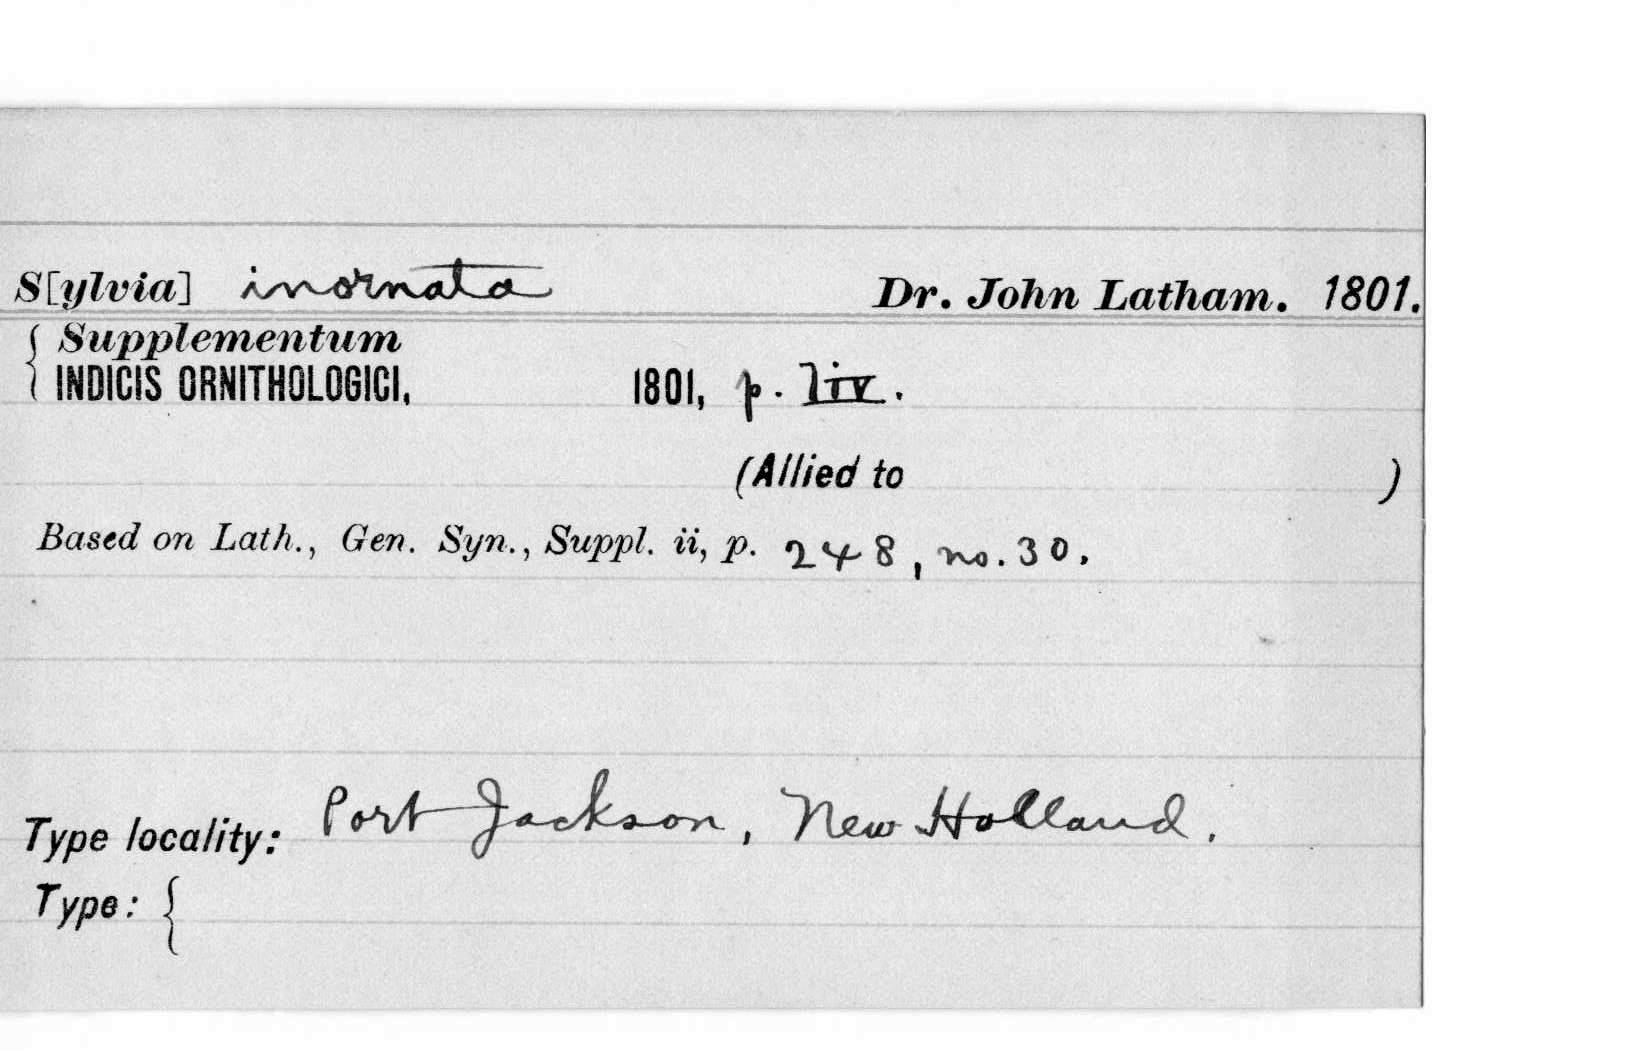 S[ylvia] inornata Dr. John Latham. 1801.
{ Supplementum
INDICIS ORNITHOLOGICI, 1801, p. liv.
(Allied to )
Based on Lath., Gen. Syn., Suppl. ii, p. 248, no. 30.
Type locality: Port Jackson, New Holland.
Type: {